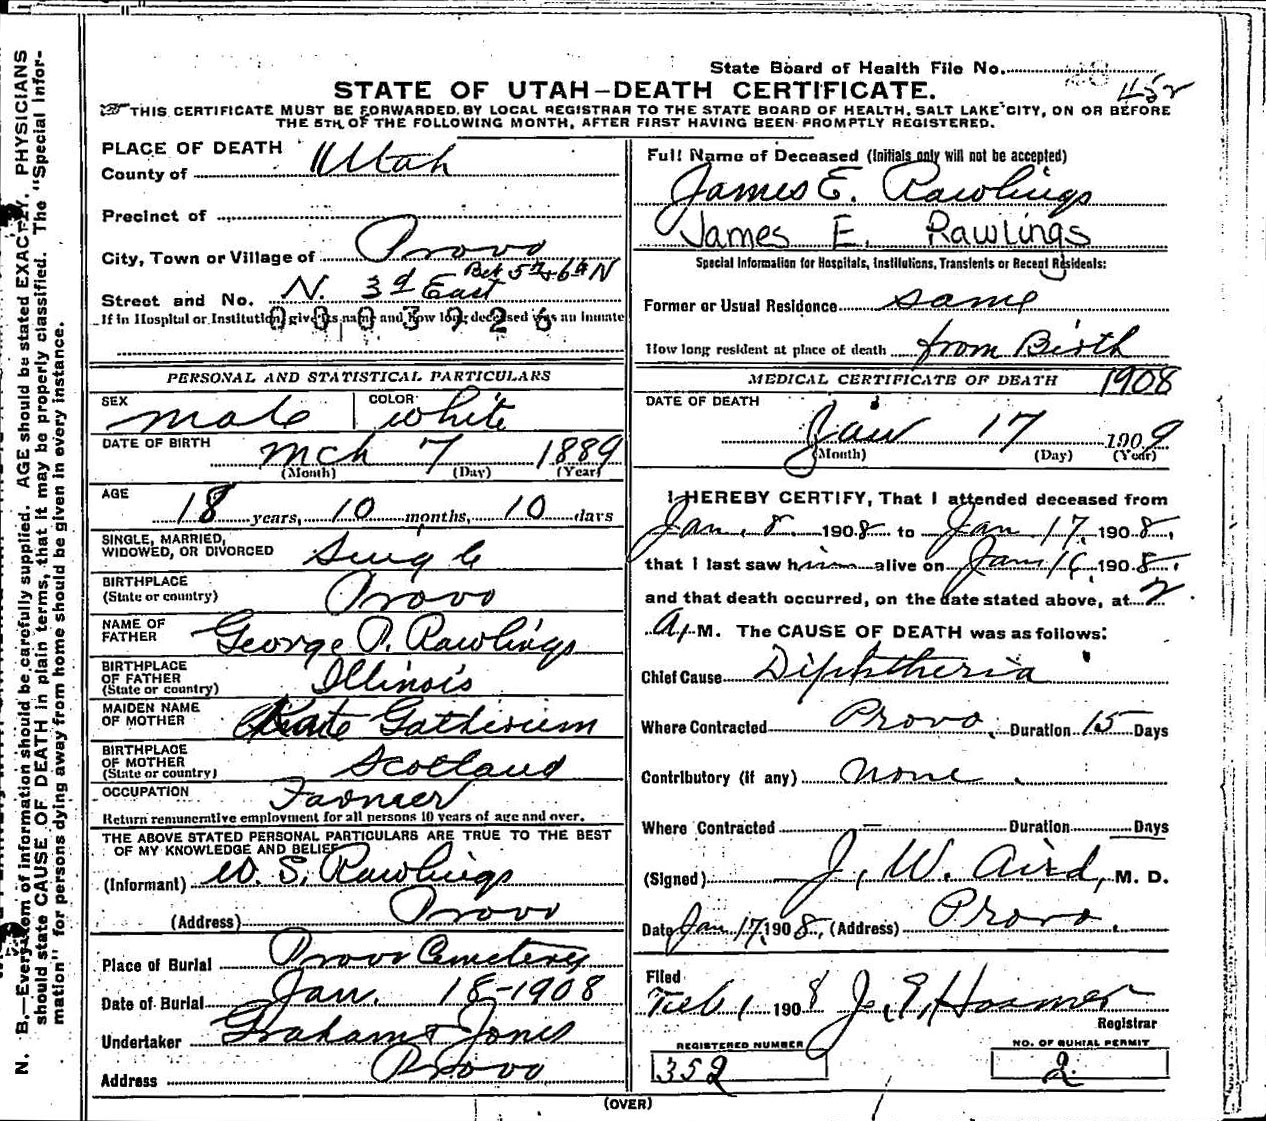 State Board of Health File No.
STATE OF UTAH—DEATH CERTIFICATE.
452
THIS CERTIFICATE MUST BE FORWARDED, BY LOCAL REGISTRAR TO THE STATE BOARD OF HEALTH, SALT LAKE CITY, ON OR BEFORE
THE 5TH OF THE FOLLOWING MONTH, AFTER FIRST HAVING BEEN PROMPTLY REGISTERED.
PLACE OF DEATH
County of Utah
Precinct of
City, Town or Village of Provo
Bet 5th + 6th N
Street and No. N. 3d East
If in Hospital or Institution, give its name and how long deceased was an inmate
0003926
PERSONAL AND STATISTICAL PARTICULARS
SEX male COLOR white
DATE OF BIRTH mch 7 1889
(Month) (Day) (Year)
AGE 18 years, 10 months, 10 days
SINGLE, MARRIED,
WIDOWED, OR DIVORCED Single
BIRTHPLACE
(State or country) Provo
NAME OF
FATHER George P. Rawlings
BIRTHPLACE
OF FATHER
(State or country) Illinois
MAIDEN NAME
OF MOTHER Kate
BIRTHPLACE
OF MOTHER
(State or country) Scotland
OCCUPATION Farmer
Return remunerative employment for all persons 10 years of age and over.
THE ABOVE STATED PERSONAL PARTICULARS ARE TRUE TO THE BEST
OF MY KNOWLEDGE AND BELIEF
(Informant) W. S. Rawlings
(Address) Provo
Place of Burial Provo Cemetery
Date of Burial Jan. 18-1908
Undertaker Graham & Jones
Address Provo
Full Name of Deceased (Initials only will not be accepted)
James E. Rawlings
James E. Rawlings
Special Information for Hospitals, Institutions, Transients or Recent Residents:
Former or Usual Residence same
How long resident at place of death from Birth
MEDICAL CERTIFICATE OF DEATH 1908
DATE OF DEATH
Jan 17 1909
(Month) (Day) (Year)
I HEREBY CERTIFY, That I attended deceased from
Jan. 8. 1908 to Jan. 17. 1908.,
that I last saw him alive on Jan 16, 1908.,
and that death occurred, on the date stated above, at 2.
A. M. The CAUSE OF DEATH was as follows:
Chief Cause Diphtheria
Where Contracted Provo. Duration 15 Days
Contributory (if any) none.
Where Contracted — Duration Days
(Signed) J. W. Aird, M. D.
Date Jan 17, 1908., (Address) Provo.
Filed
Feb 1 1908 J. E. Hosmer
Registrar
REGISTERED NUMBER
352
NO. OF BURIAL PERMIT
2
(OVER)
N. B.—Every item of information should be carefully supplied. AGE should be stated EXACTLY. PHYSICIANS
should state CAUSE OF DEATH in plain terms, that it may be properly classified. The "Special Infor-
mation" for persons dying away from home should be given in every instance.